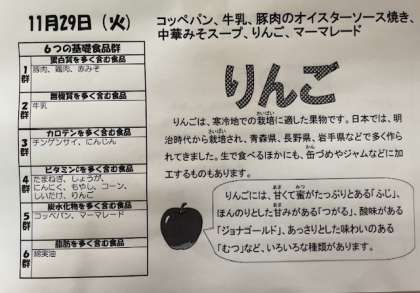 11月29日（火）
コッペパン、牛乳、豚肉のオイスターソース焼き、
中華みそスープ、りんご、マーマレード
6つの基礎食品群
1群
蛋白質を多く含む食品
豚肉、鶏肉、赤みそ
2群
無機質を多く含む食品
牛乳
3群
カロテンを多く含む食品
チンゲンサイ、にんじん
4群
ビタミンCを多く含む食品
たまねぎ、しょうが、
にんにく、もやし、コーン、
しいたけ、りんご
5群
炭水化物を多く含む食品
コッペパン、マーマレード
6群
脂肪を多く含む食品
綿実油
りんご
りんごは、寒冷地での栽培に適した果物です。日本では、明
治時代から栽培され、青森県、長野県、岩手県などで多く作ら
れてきました。生で食べるほかにも、缶づめやジャムなどに加
工するものもあります。
りんごには、甘くて蜜がたっぷりとある「ふじ」、
ほんのりとした甘みがある「つがる」、酸味がある
「ジョナゴールド」、あっさりとした味わいのある
「むつ」など、いろいろな種類があります。